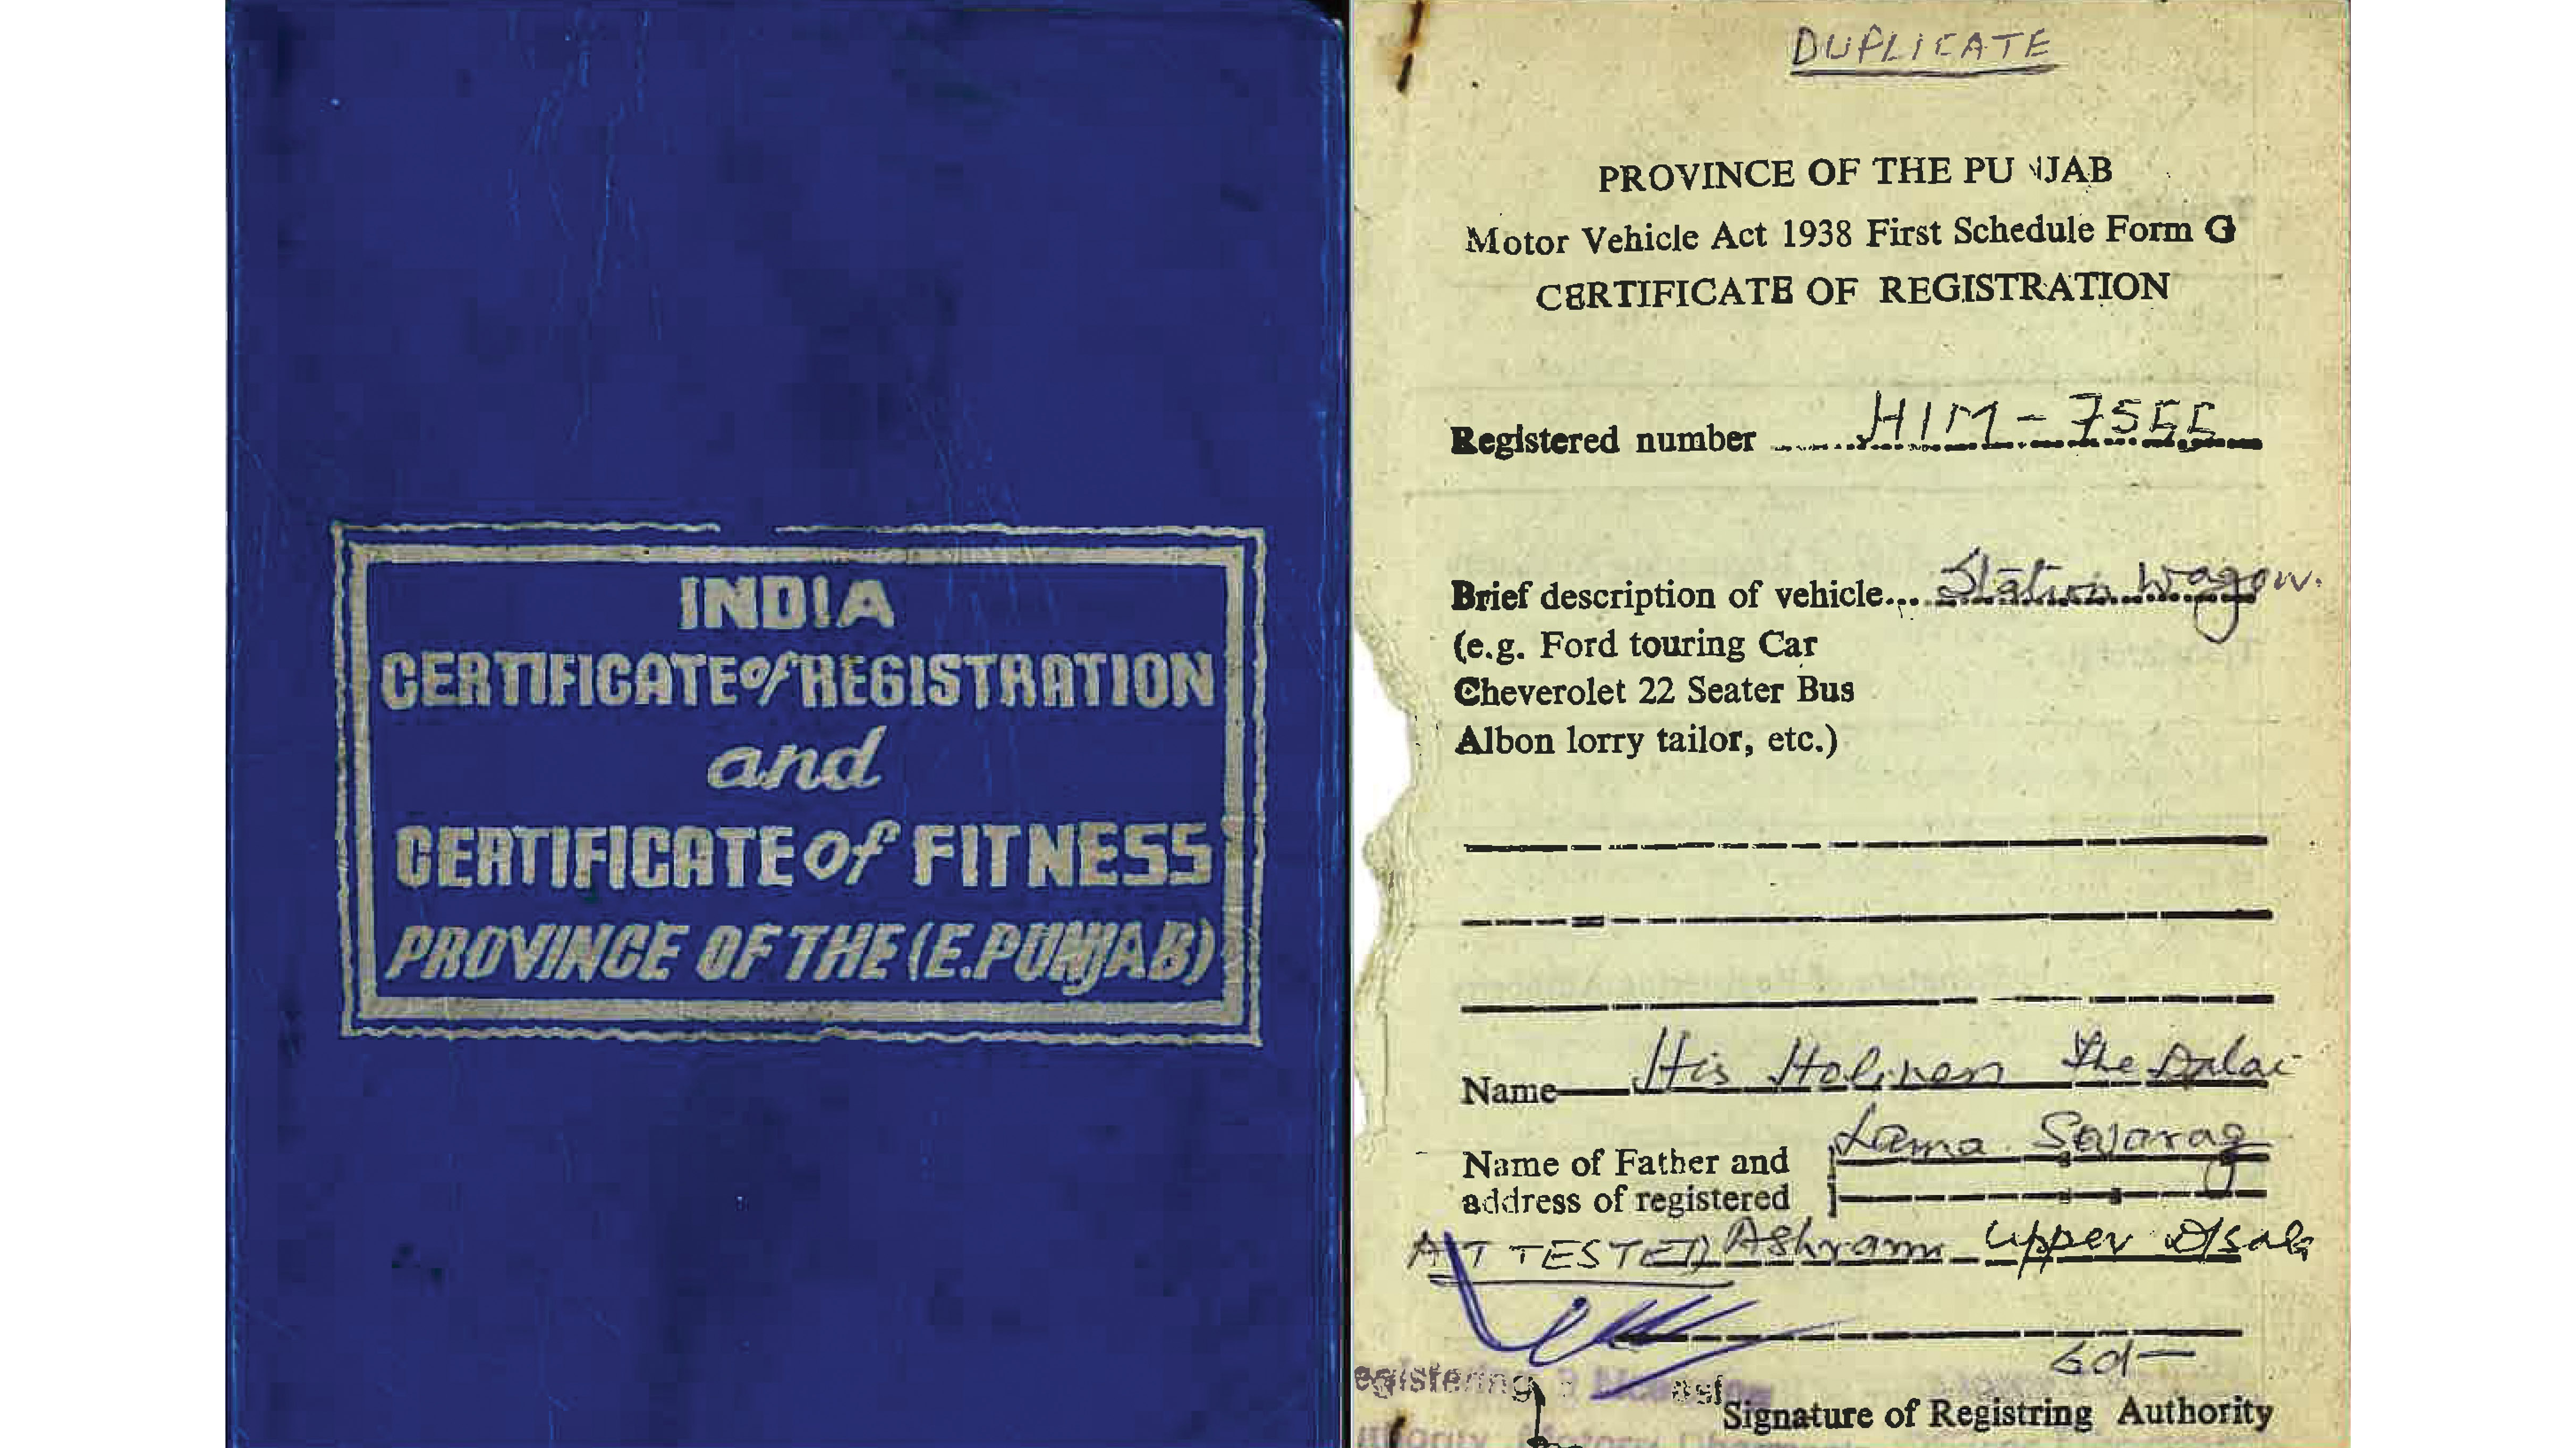 INDIA
CERTIFICATE of REGISTRATION
and
CERTIFICATE of FITNESS
PROVINCE OF THE (E.PUNJAB)
DUPLICATE
PROVINCE OF THE PUNJAB
Motor Vehicle Act 1938 First Schedule Form G
CERTIFICATE OF REGISTRATION
Registered number HIM-7555
Brief description of vehicle... Station Wagon.
(e.g. Ford touring Car
Cheverolet 22 Seater Bus
Albon lorry tailor, etc.)
Name His Holiness The Dalai
Name of Father and Lama Swarag
address of registered
ATTESTED Ashram Upper
Sd-
egistering
Signature of Registring Authority